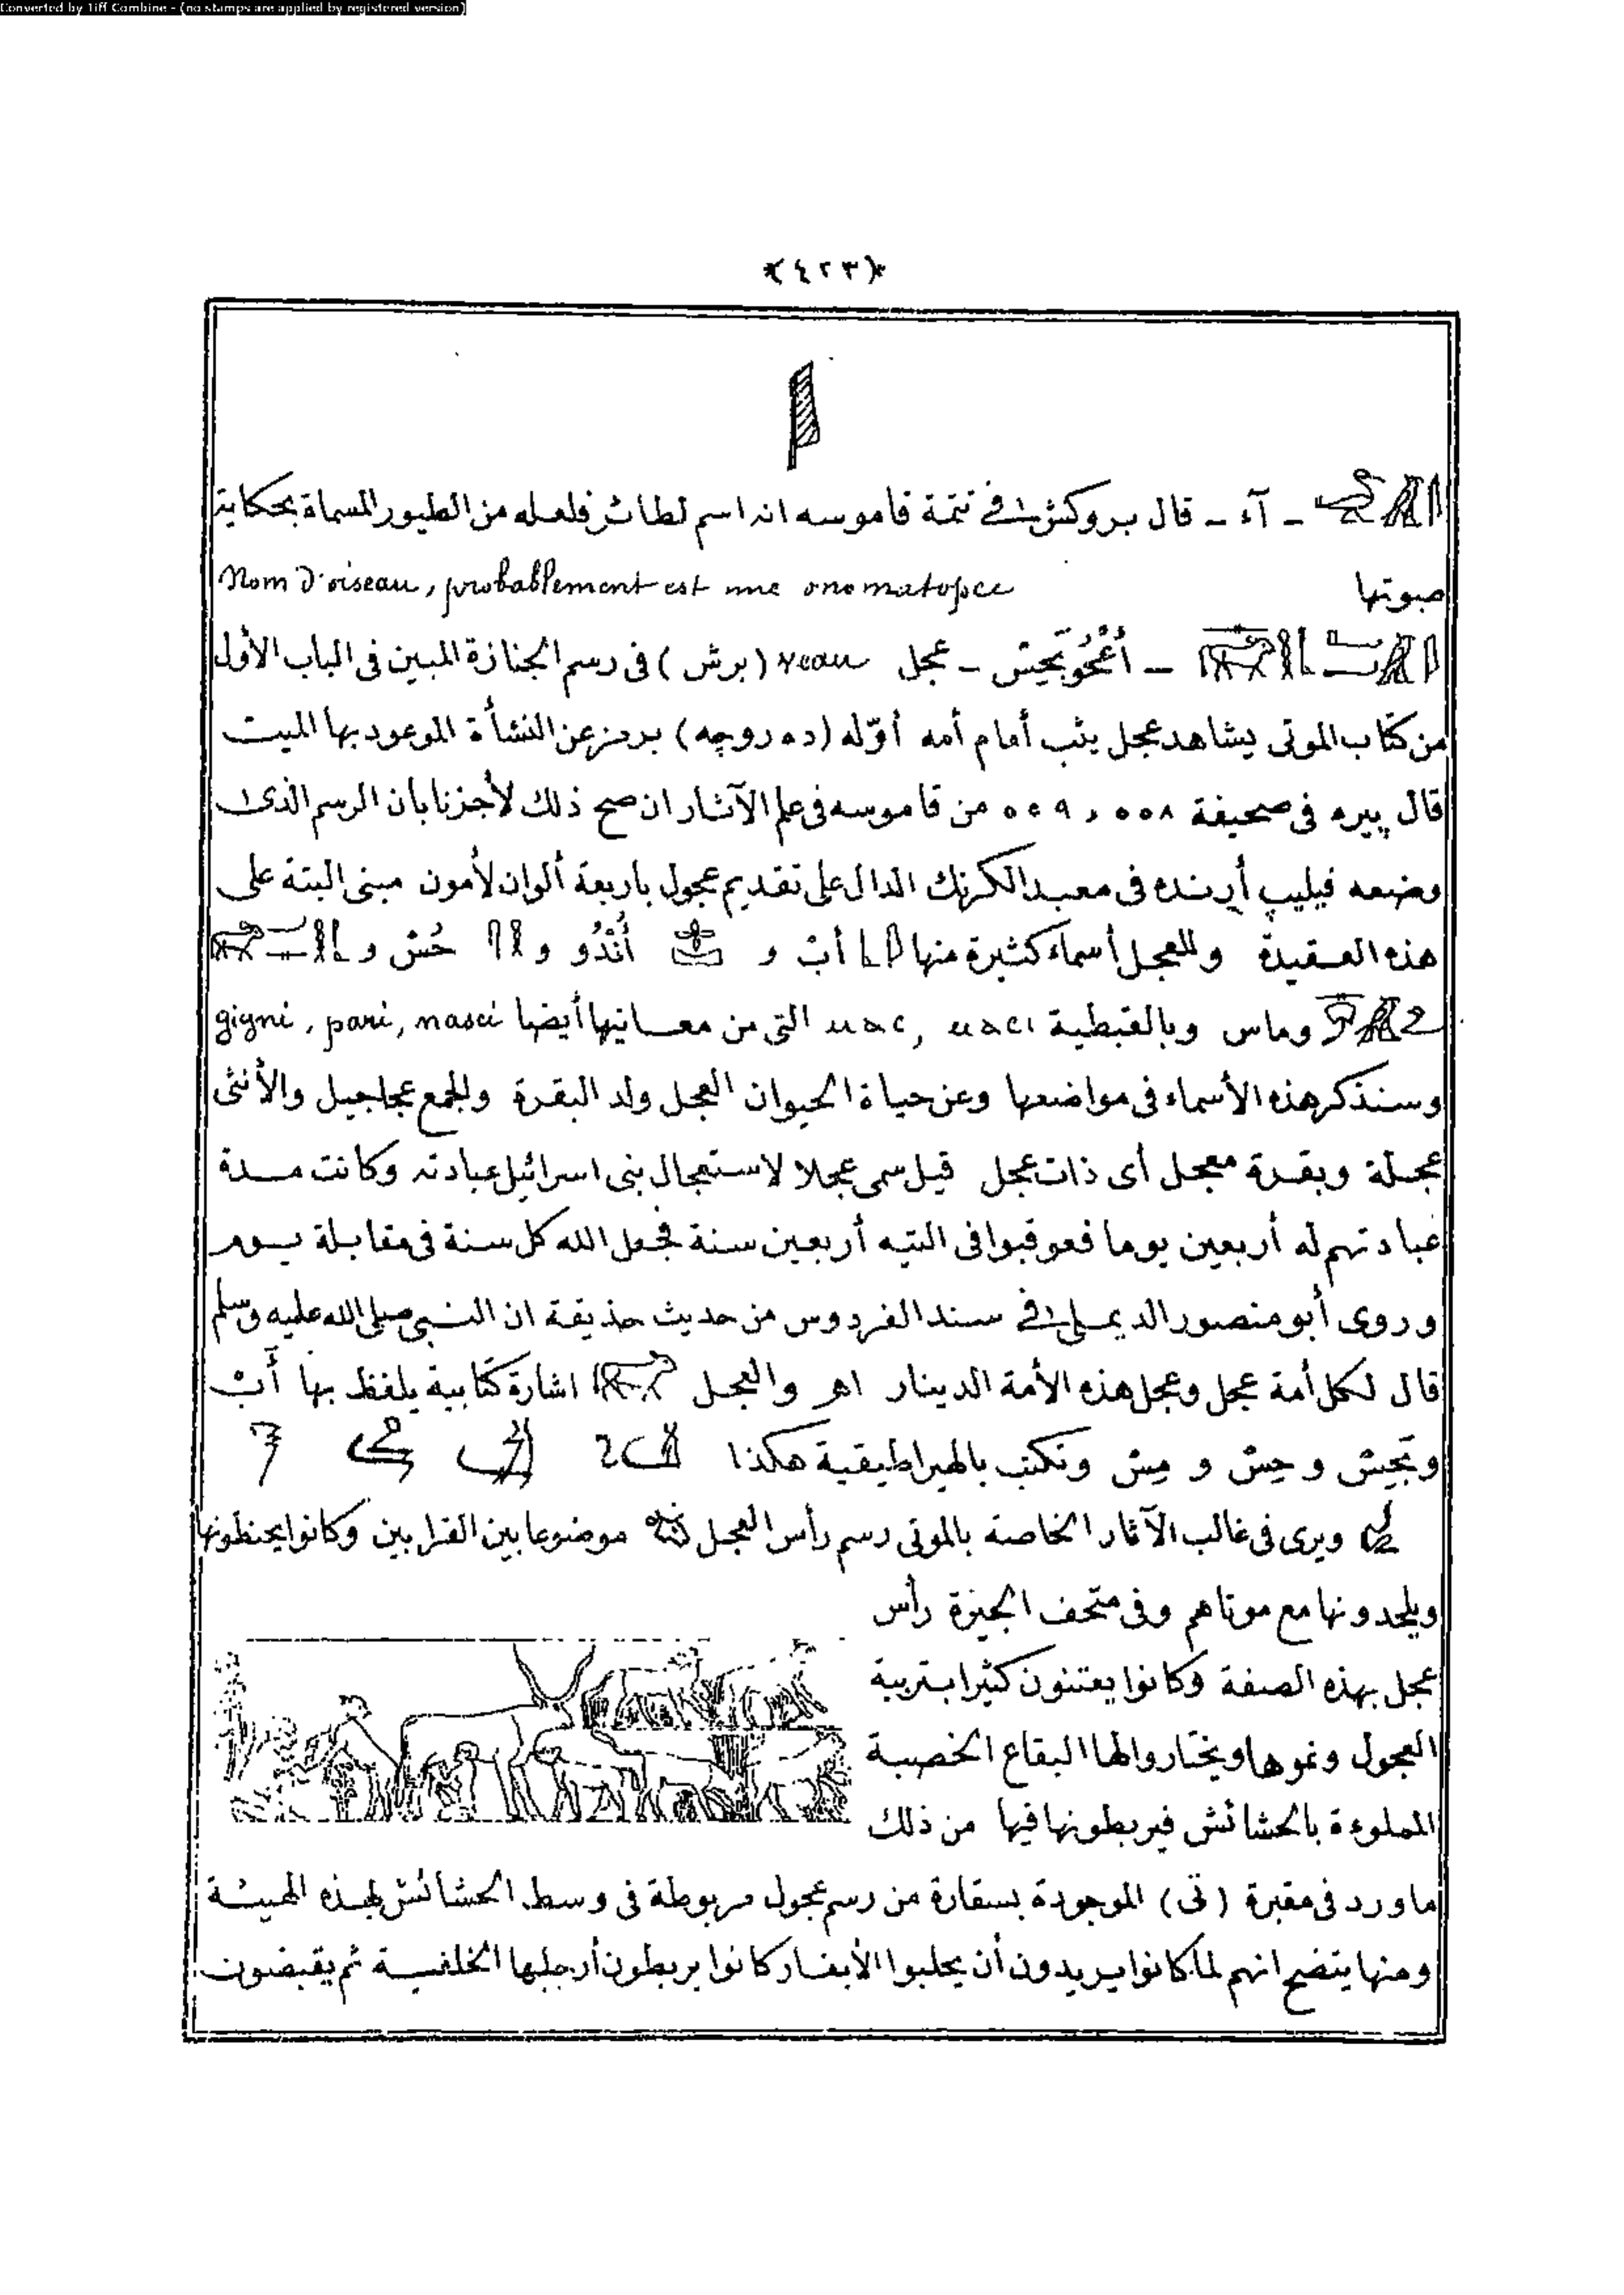 Converted by Tiff Combine - (no stamps are applied by registered version)
﴿٤٢٣﴾
- آء - قال بروكش فى تتمة قاموسه انه اسم لطائر فلعله من الطيور المسماة بحكاية
صوتها Nom d'oiseau, probablement est une onomatopee
- عجل veau (برش) فى رسم الجنازة المبين فى الباب الأول
من كتاب الموتى يشاهد عجل يثب أمام أمه أوّله (ده روچه) برمز عن النشأة الموعود بها الميت
قال پيره فى صحيفة ٥٥٨ و ٥٥٩ من قاموسه فى علم الآثار ان صح ذلك لأجزنا بان الرسم الذى
وضعه فيليب أرنده فى معبد الكرنك الدال على تقديم عجول باربعة ألوان لأمون مبنى البتة على
هذه العقيدة وللعجل أسماء كثيرة منها أبْ و أُنْدُو و حُسْ و
وماس وبالقبطية ⲙⲁⲥ, ⲙⲁⲥⲓ التى من معانيها أيضا gigni, pari, nasci
وسنذكر هذه الأسماء فى مواضعها وعن حياة الحيوان العجل ولد البقرة والجمع عجاجيل والأنثى
عجلة وبقرة معجل أى ذات عجل قيل سمى عجلا لاستعجال بنى اسرائيل عبادته وكانت مدة
عبادتهم له أربعين يوما فعوقبوا فى التيه أربعين سنة فجعل الله كل سنة فى مقابلة يوم
وروى أبو منصور الديملى فى سند الفردوس من حديث حذيفة ان النبى صلى الله عليه وسلم
قال لكل أمة عجل وعجل هذه الأمة الدينار اهـ والعجل اشارة كتابية يلفظ بها أَبْ
وبَحِسْ و حِسْ و مِسْ وتكتب بالهيراطيقية هكذا
ويرى فى غالب الآثار الخاصة بالموتى رسم رأس العجل موضوعا بين القرابين وكانوا يحنطونها
ويلحدونها مع موتاهم وفى متحف الجيزة رأس
عجل بهذه الصفة وكانوا يعتنون كثيرا بتربية
العجول ونموها ويختاروا لها البقاع الخصبة
المملوءة بالحشائش فيربطونها فيها من ذلك
ما ورد فى مقبرة (تى) الموجودة بسقارة من رسم عجول مربوطة فى وسط الحشائش لهذه الهيئة
ومنها يتضح انهم لما كانوا يريدون أن يحلبوا الأبقار كانوا يربطون أرجلها الخلفية ثم يقبضون